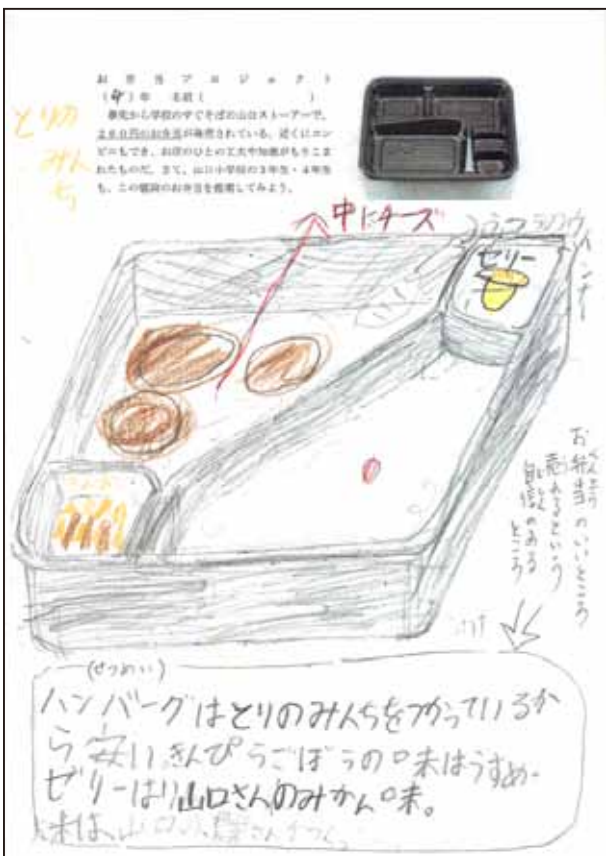 お弁当プロジェクト
(4)年 名前( )
春先から学校のすぐそばの山口ストーアーで、
260円のお弁当が発売されている。近くにコン
ビニもでき、お店のひとの工夫や知恵がもりこま
れたものだ。さて、山口小学校の3年生・4年生
も、この値段のお弁当を提案してみよう。
とりの
みんち
中にチーズ
ゼリー
お弁当のいいところ
売れるという
自信のある
ところ
(せつめい)
ハンバーグはとりのみんちをつかっているか
ら安い。きんぴらごぼうの味はうすめ。
ゼリーは山口さんのみかん味。